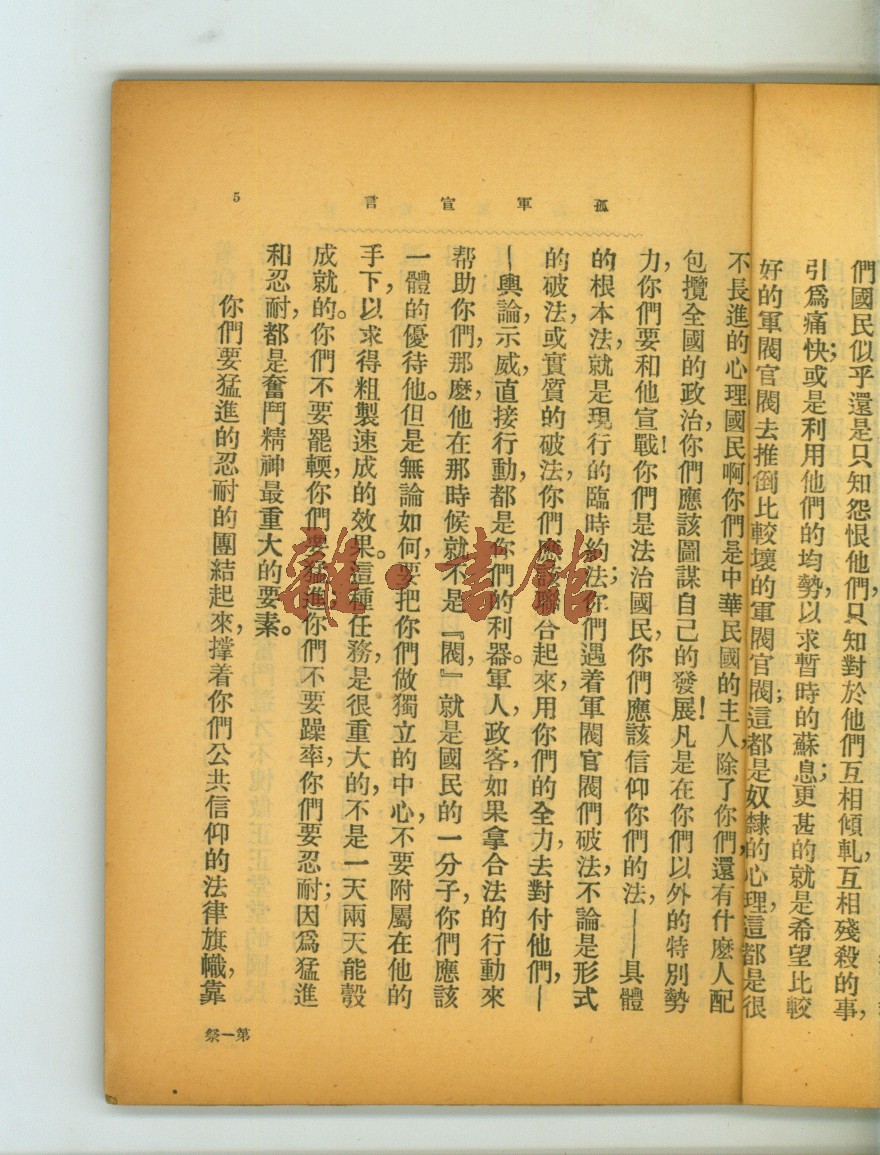 孤軍宣言
5
們國民似乎還是只知怨恨他們,只知對於他們互相傾軋,互相殘殺的事,
引爲痛快;或是利用他們的均勢,以求暫時的蘇息;更甚的就是希望比較
好的軍閥官閥去推倒比較壞的軍閥官閥;這都是奴隸的心理,這都是很
不長進的心理國民啊你們是中華民國的主人,除了你們,還有什麽人配
包攬全國的政治,你們應該圖謀自己的發展!凡是在你們以外的特別勢
力,你們要和他宣戰!你們是法治國民,你們應該信仰你們的法,——具體
的根本法,就是現行的臨時約法;你們遇着軍閥官閥們破法,不論是形式
的破法,或實質的破法,你們應該聯合起來,用你們的全力,去對付他們,—
—輿論,示威,直接行動,都是你們的利器。軍人,政客,如果拿合法的行動來
帮助你們,那麽,他在那時候就不是『閥,』就是國民的一分子,你們應該
一體的優待他。但是無論如何,要把你們做獨立的中心,不要附屬在他的
手下,以求得粗製速成的效果。這種任務,是很重大的,不是一天兩天能彀
成就的。你們不要罷輭,你們要猛進,你們不要躁率,你們要忍耐;因爲猛進
和忍耐,都是奮鬥精神最重大的要素。
你們要猛進的忍耐的團結起來,撑着你們公共信仰的法律旗幟,靠
第一祭
雜·書館